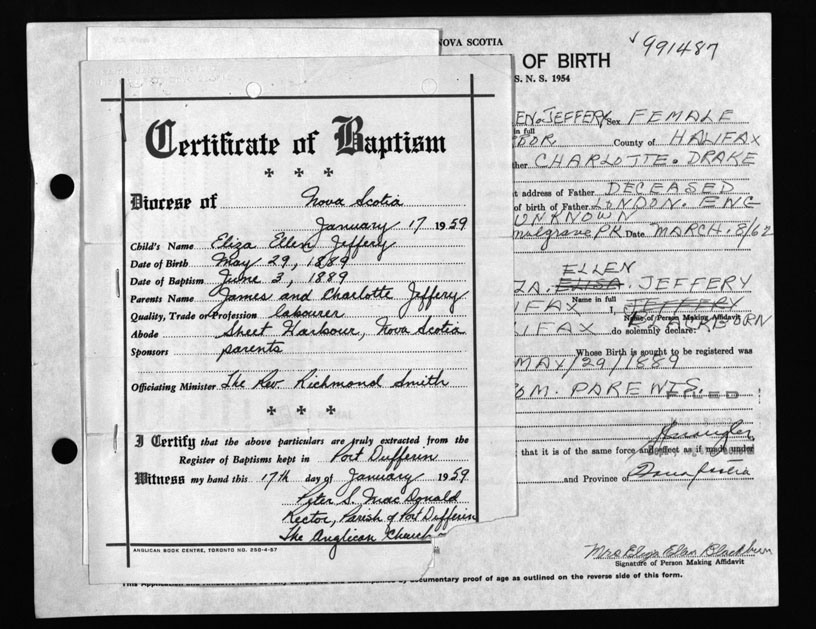 NOVA SCOTIA
991487
OF BIRTH
S. N. S. 1954
Certificate of Baptism
Diocese of Nova Scotia
January 17 1959
Child's Name Eliza Ellen Jeffery
Date of Birth May 29, 1889
Date of Baptism June 3, 1889
Parents Name James and Charlotte Jeffery
Quality, Trade or Profession labourer
Abode Sheet Harbour, Nova Scotia
Sponsors parents
Officiating Minister The Rev Richmond Smith
I Certify that the above particulars are truly extracted from the
Register of Baptisms kept in Port Dufferin
Witness my hand this 17th day of January 1959
Peter S. MacDonald
Rector, Parish of Port Dufferin
The Anglican Church
ANGLICAN BOOK CENTRE, TORONTO NO. 250-4-57
JEFFERY Sex FEMALE
in full
County of HALIFAX
ther CHARLOTTE. DRAKE
t address of Father DECEASED
of birth of Father LONDON. ENG
UNKNOWN
PK Date MARCH. 8/62
ELLEN
ELISA. JEFFERY
Name in full
IFAX I, JEFFERY
Name of Person Making Affidavit
LIFAX do solemnly declare:
Whose Birth is sought to be registered was
MAY/29/1889
OM. PARENTS.
FILED
that it is of the same force and effect as if made under
and Province of Nova Scotia
Mrs Eliza Ellen Blackburn
Signature of Person Making Affidavit
This Application and documentary proof of age as outlined on the reverse side of this form.